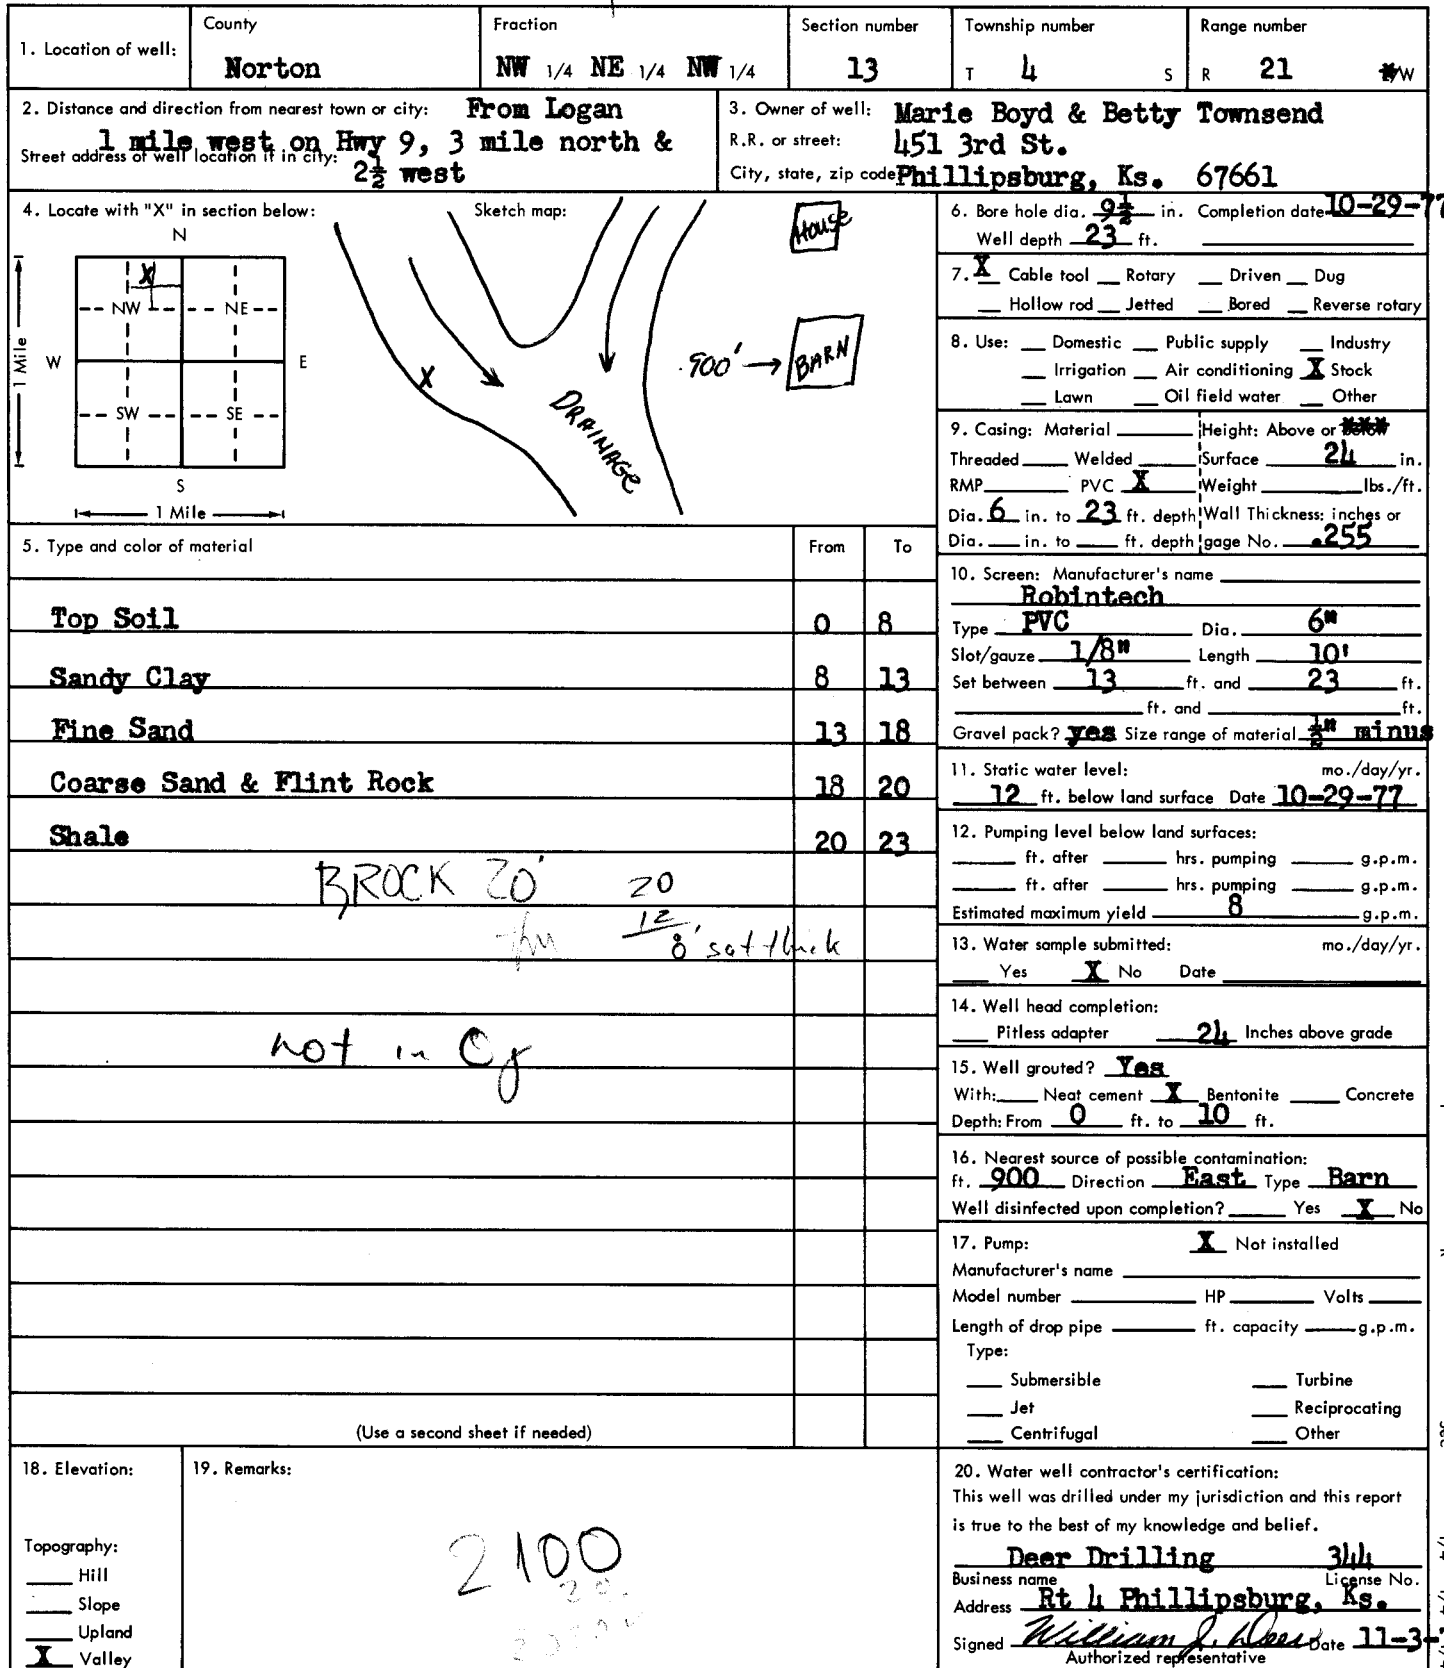 1. Location of well:
County
Norton
Fraction
NW 1/4 NE 1/4 NW 1/4
Section number
13
Township number
T 4 S
Range number
R 21 W
2. Distance and direction from nearest town or city: From Logan
1 mile west on Hwy 9, 3 mile north &
Street address of well location if in city:
2½ west
3. Owner of well: Marie Boyd & Betty Townsend
R.R. or street: 451 3rd St.
City, state, zip code Phillipsburg, Ks. 67661
4. Locate with "X" in section below:
N
X
NW NE
W E
SW SE
S
1 Mile
1 Mile
Sketch map:
House
900' → BARN
X
DRAINAGE
5. Type and color of material From To
Top Soil 0 8
Sandy Clay 8 13
Fine Sand 13 18
Coarse Sand & Flint Rock 18 20
Shale 20 23
BROCK 20' 20
12
8' sat thick
not in Og
(Use a second sheet if needed)
6. Bore hole dia. 9½ in. Completion date 10-29-77
Well depth 23 ft.
7. X Cable tool Rotary Driven Dug
Hollow rod Jetted Bored Reverse rotary
8. Use: Domestic Public supply Industry
Irrigation Air conditioning X Stock
Lawn Oil field water Other
9. Casing: Material Height: Above or
Threaded Welded Surface 24 in.
RMP PVC X Weight lbs./ft.
Dia. 6 in. to 23 ft. depth Wall Thickness: inches or
Dia. in. to ft. depth gage No. .255
10. Screen: Manufacturer's name
Robintech
Type PVC Dia. 6"
Slot/gauze 1/8" Length 10'
Set between 13 ft. and 23 ft.
ft. and ft.
Gravel pack? yes Size range of material ½" minus
11. Static water level: mo./day/yr.
12 ft. below land surface Date 10-29-77
12. Pumping level below land surfaces:
ft. after hrs. pumping g.p.m.
ft. after hrs. pumping g.p.m.
Estimated maximum yield 8 g.p.m.
13. Water sample submitted: mo./day/yr.
Yes X No Date
14. Well head completion:
Pitless adapter 24 Inches above grade
15. Well grouted? Yes
With: Neat cement X Bentonite Concrete
Depth: From 0 ft. to 10 ft.
16. Nearest source of possible contamination:
ft. 900 Direction East Type Barn
Well disinfected upon completion? Yes X No
17. Pump: X Not installed
Manufacturer's name
Model number HP Volts
Length of drop pipe ft. capacity g.p.m.
Type:
Submersible Turbine
Jet Reciprocating
Centrifugal Other
18. Elevation:
Topography:
Hill
Slope
Upland
X Valley
19. Remarks:
2100
20. Water well contractor's certification:
This well was drilled under my jurisdiction and this report
is true to the best of my knowledge and belief.
Deer Drilling 344
Business name License No.
Address Rt 4 Phillipsburg, Ks.
Signed William J. Deer Date 11-3-
Authorized representative